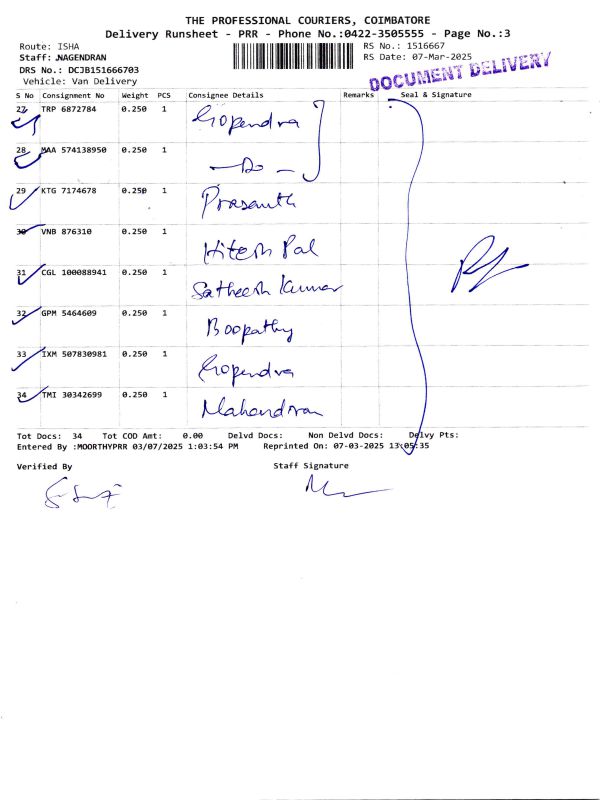 THE PROFESSIONAL COURIERS, COIMBATORE
Delivery Runsheet - PRR - Phone No.:0422-3505555 - Page No.:3
Route: ISHA
RS No.: 1516667
Staff: NAGENDRAN
RS Date: 07-Mar-2025
DRS No.: DCJB151666703
Vehicle: Van Delivery
DOCUMENT DELIVERY
S No Consignment No Weight PCS Consignee Details Remarks Seal & Signature
27 TRP 6872784 0.250 1 Gopendra
28 MAA 574138950 0.250 1 — Do —
29 KTG 7174678 0.250 1 Prasanth
30 VNB 876310 0.250 1 Hitesh Pal
31 CGL 100088941 0.250 1 Satheesh Kumar
32 GPM 5464609 0.250 1 Boopathy
33 IXM 507830981 0.250 1 Gopendra
34 TMI 30342699 0.250 1 Mahandran
Tot Docs: 34 Tot COD Amt: 0.00 Delvd Docs: Non Delvd Docs: Delvy Pts:
Entered By :MOORTHYPRR 03/07/2025 1:03:54 PM Reprinted On: 07-03-2025 13:05:35
Verified By Staff Signature